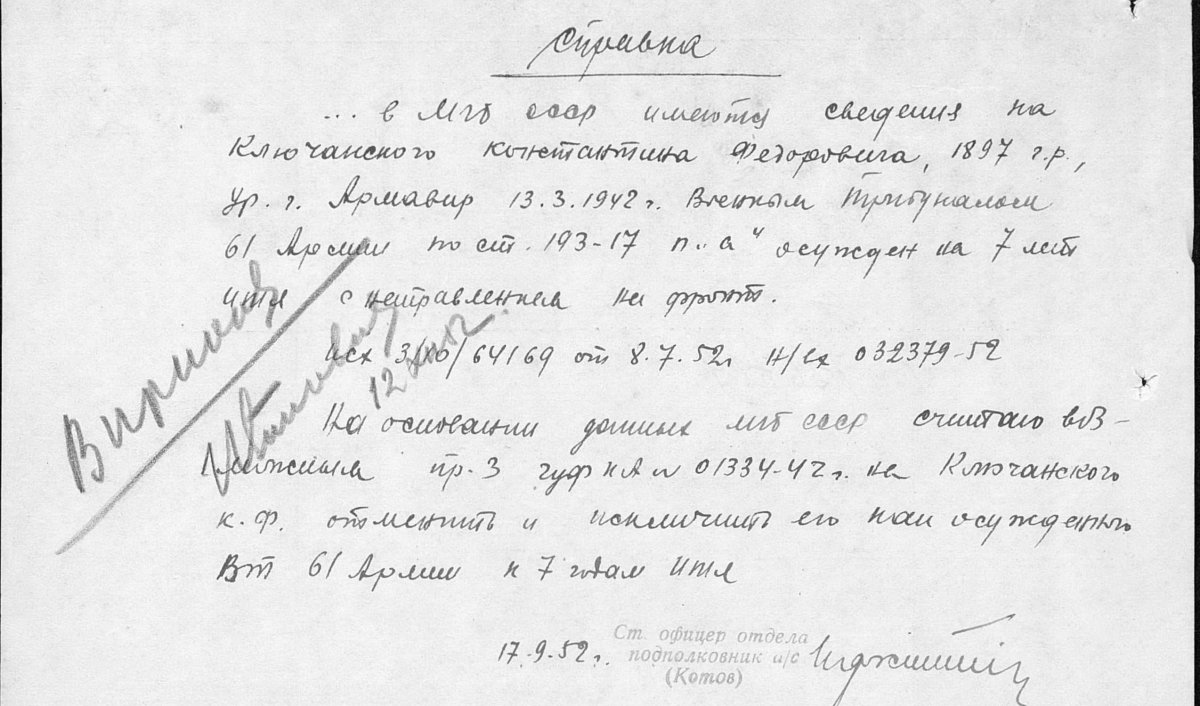 Справка
... в МГБ СССР имеются сведения на
Ключанского Константина Федоровича, 1897 г.р.,
ур. г. Армавир 13.3.1942 г. Военным Трибуналом
61 Армии по ст. 193-17 п. "а" осужден на 7 лет
ИТЛ с направлением на фронт.
исх 3/10/64169 от 8.7.52 г н/вх 032379-52
На основании данных МГБ СССР считаю воз-
можным пр. 3 ГУФ КА № 01334-42 г. на Ключанского
К.Ф. отменить и исключить его как осужденного
ВТ 61 Армии к 7 годам ИТЛ
17.9.52 г.
Ст. офицер отдела
подполковник а/с
(Котов)
12